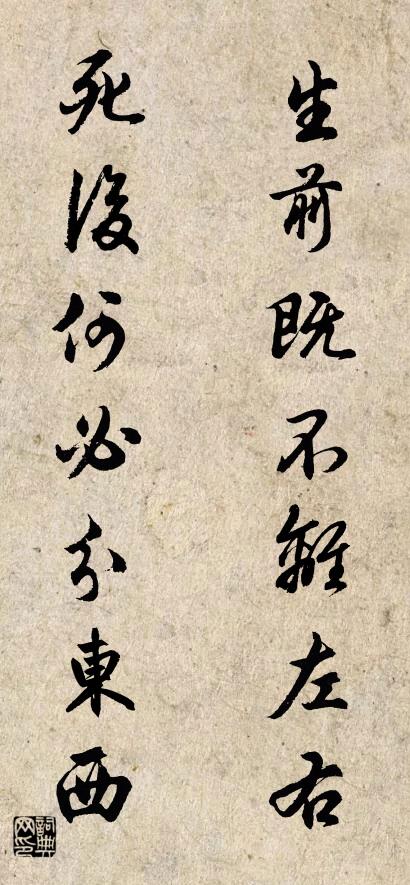 生前既不離左右
死後何必分東西
詞典网印